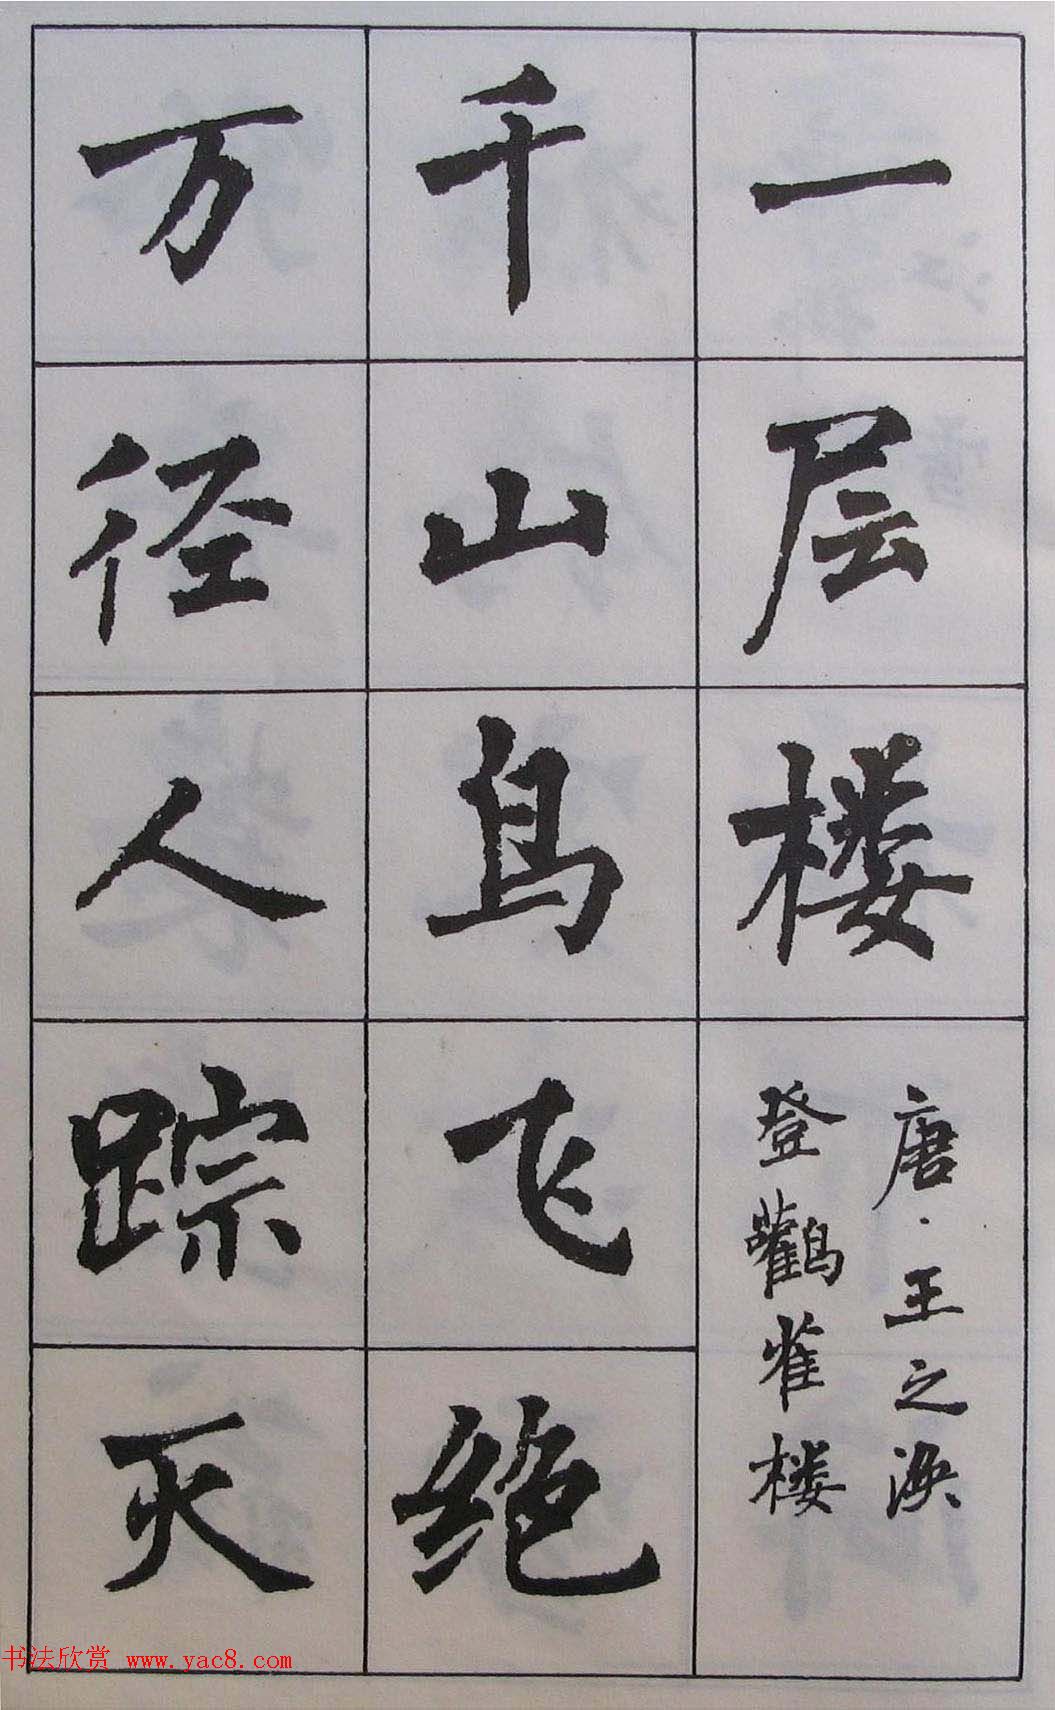 一层楼
唐·王之涣
登鸛雀楼
千山鸟飞绝
万径人踪灭
书法欣赏 www.yac8.com